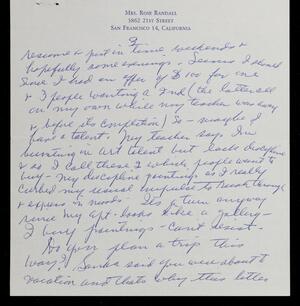 MRS. ROSE RANDALL
3862 21ST STREET
SAN FRANCISCO 14, CALIFORNIA
2
resume & put in time weekends &
hopefully some evenings. Seems I should
since I had an offer of $100 for one
& 3 people wanting a 2nd (the latter all
on my own while my teacher was away
& before its completion) So - maybe I
have a talent. My teacher says I'm
bursting in art talent but lacks discipline
& as I call these 2 which people want to
buy - my discipline paintings as I really
curbed my usual impulse to break through
& express "in moods". It's a fun anyway
since my apt. looks like a gallery -
I buy paintings - can't resist.
Do you plan a trip this
way? said you were about to
vacation and that's why this letter